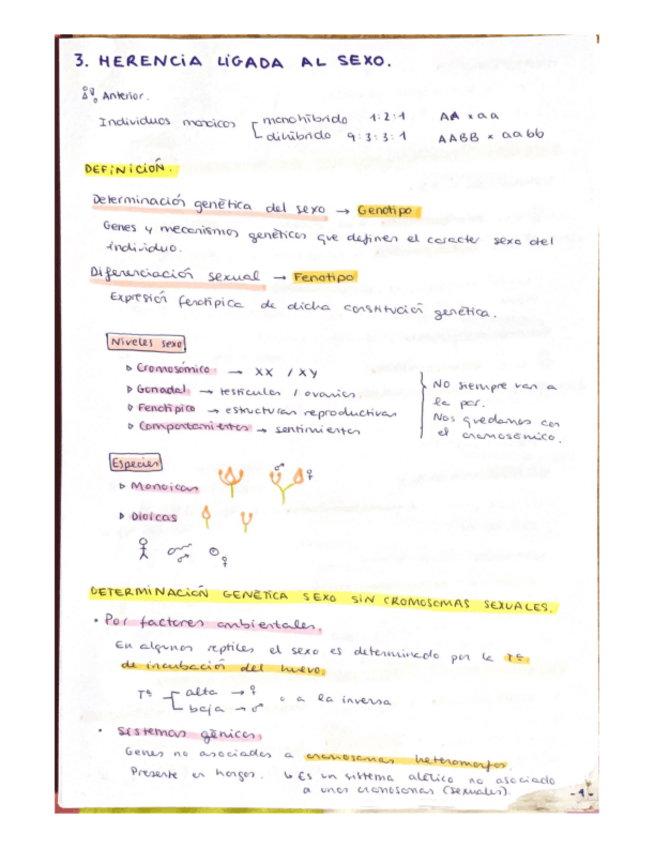 3. HERENCIA LIGADA AL SEXO.
Anterior.
Individuos monoicos monohíbrido 1:2:1 AA x aa
dihíbrido 9:3:3:1 AABB x aabb
DEFINICIÓN.
Determinación genética del sexo → Genotipo
Genes y mecanismos genéticos que definen el caracter sexo del
individuo.
Diferenciación sexual → Fenotipo
Expresión fenotípica de dicha constitución genética.
Niveles sexo
▷ Cromosómico → XX / XY
▷ Gonadal → testículos / ovarios.
▷ Fenotípico → estructuras reproductivas
▷ Comportamientos → sentimientos
NO siempre van a
la par.
Nos quedamos con
el cromosómico.
Especies
▷ Monoicas ♂ ♀
▷ Dioicas
♂ ♀
DETERMINACIÓN GENÉTICA SEXO SIN CROMOSOMAS SEXUALES.
• Por factores ambientales.
En algunos reptiles el sexo es determinado por la Tª
de incubación del huevo.
Tª alta → ♀ o a la inversa
baja → ♂
• Sistemas génicos.
Genes no asociados a cromosomas heteromorfos.
Presente en hongos. ↳ Es un sistema alélico no asociado
a unos cromosomas (sexuales).
-1-